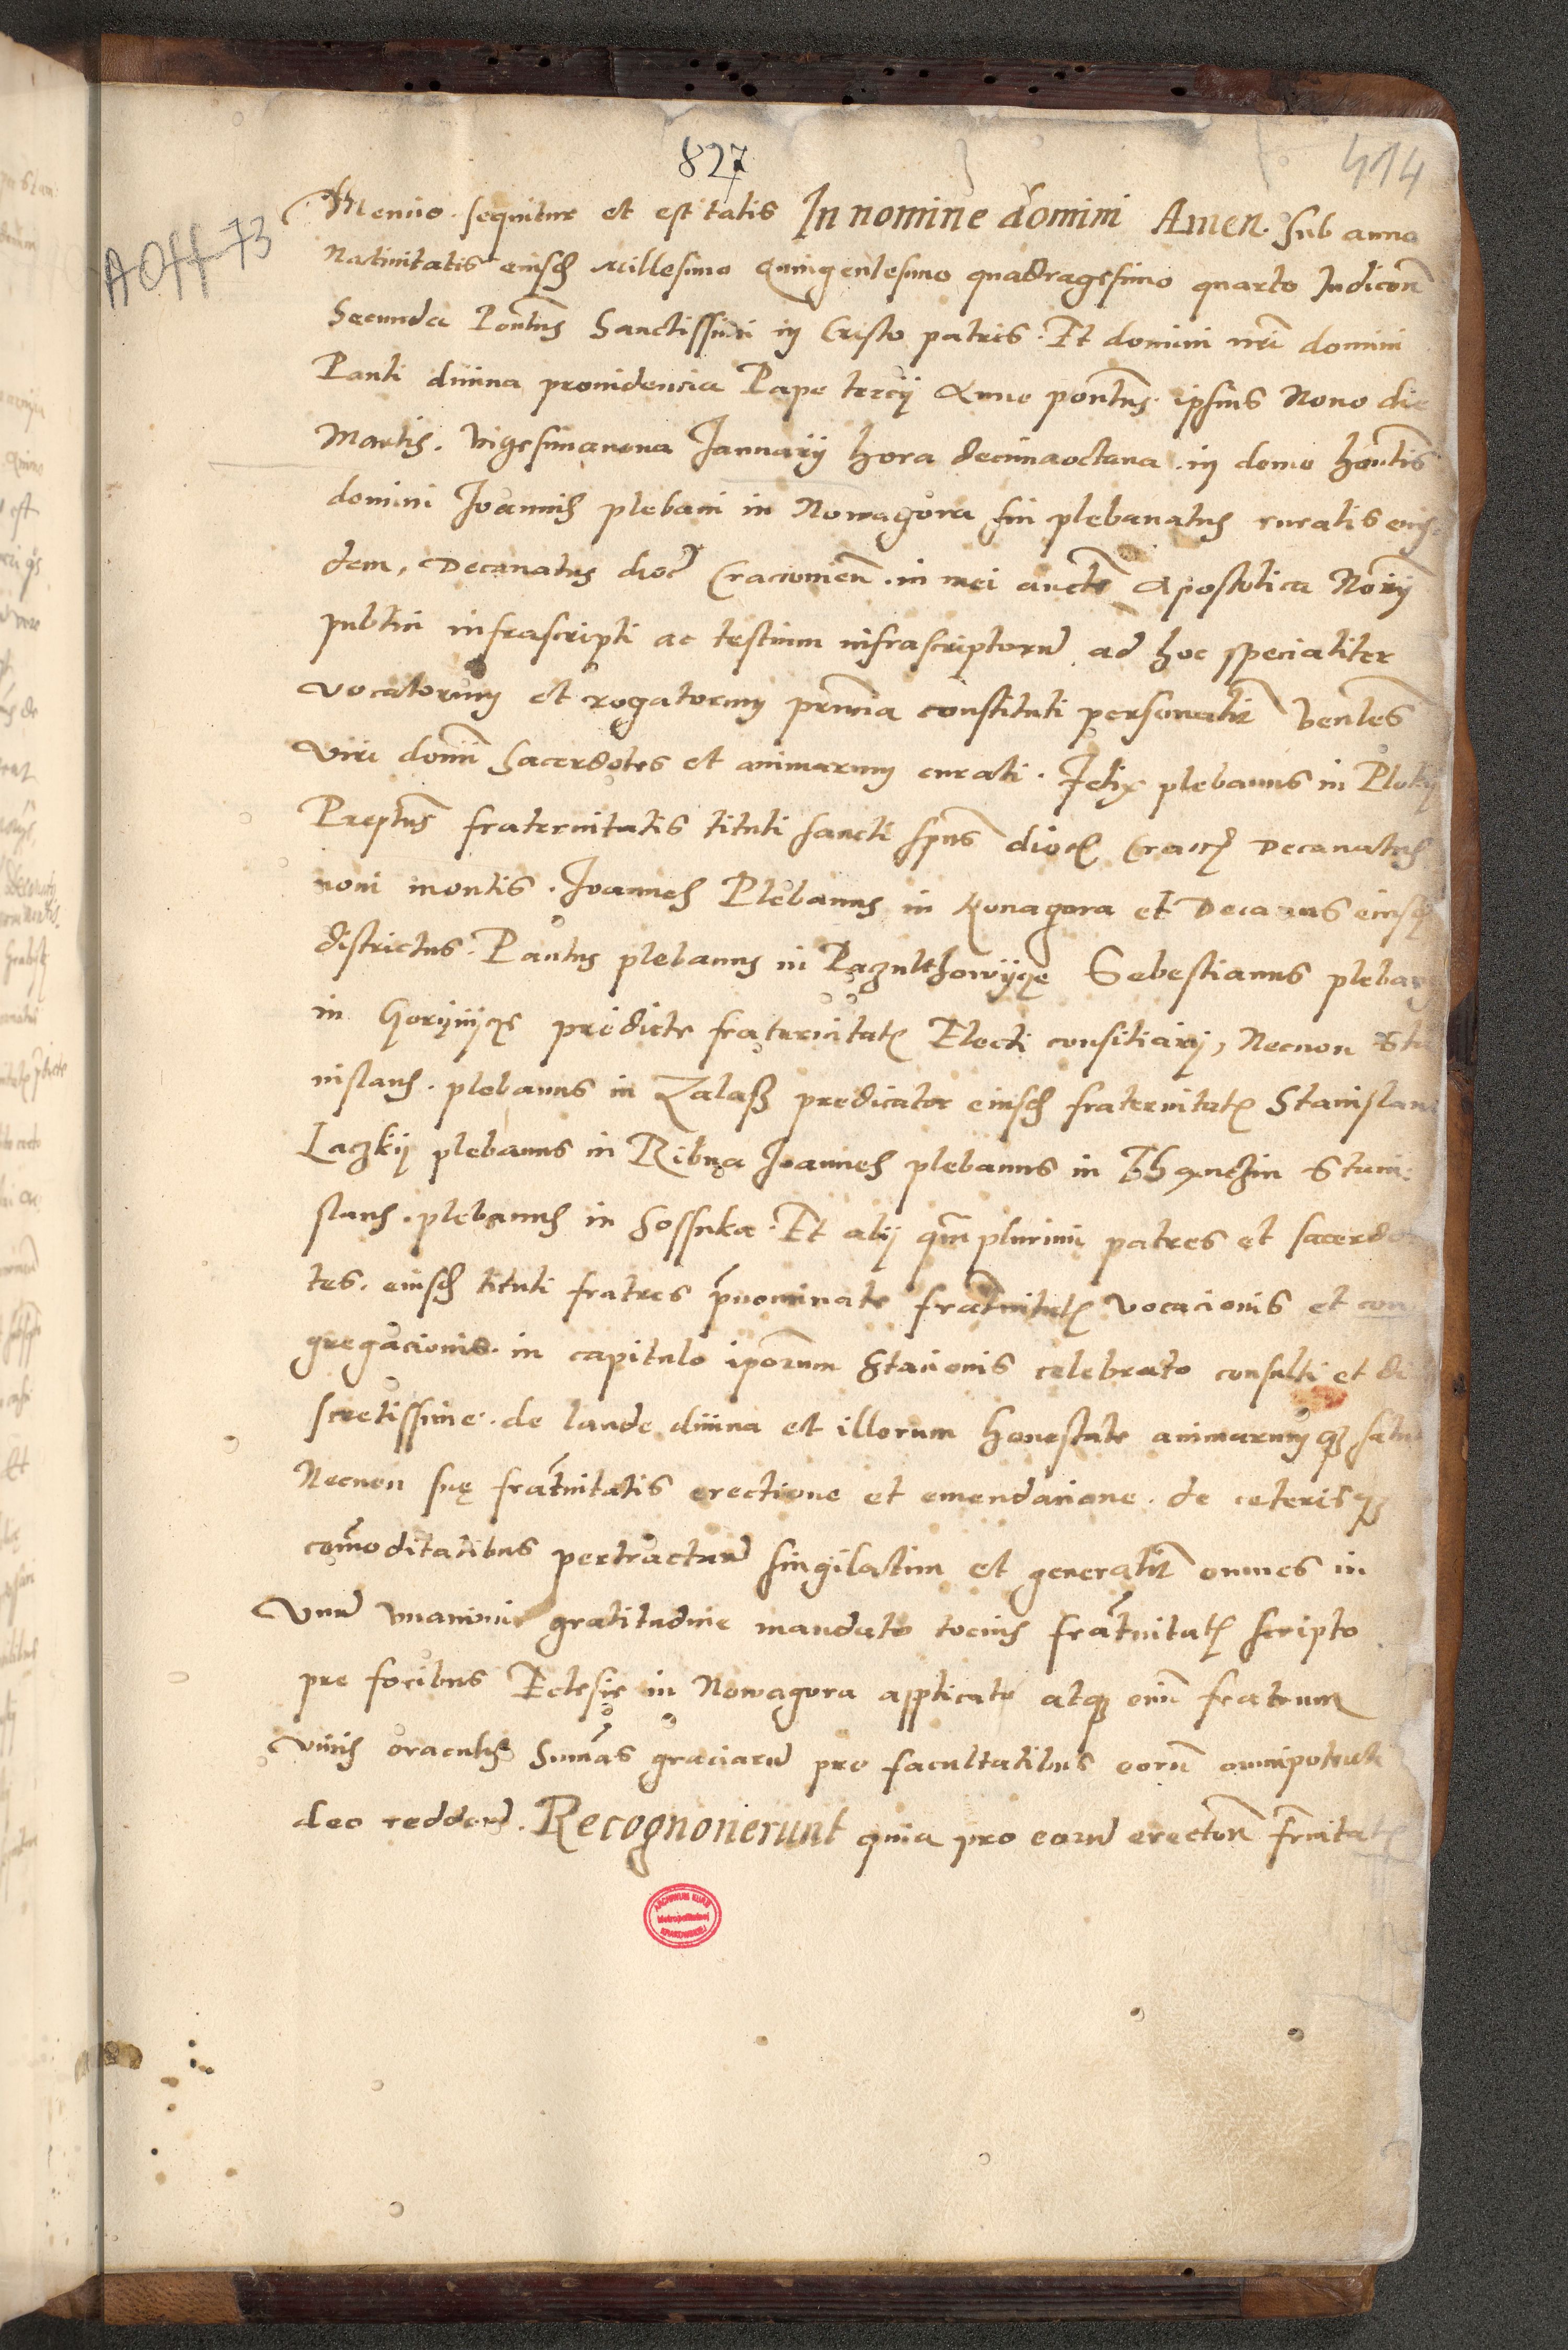 827
414
A Off 73
Mencio. sequitur et est talis In nomine domini Amen. Sub anno
Natiuitatis eiusd millesimo Quingentesimo quadragesimo quarto Indiccon
Secunda Pontus Sanctissimi in Cristo patris. Et domini nri domini
Pauli diuina prouidencia Pape tercij Anno pontus ipsius Nono die
Martis. Vigesimanona Januarij hora decimaoctaua. in domo honlis
domini Joannis plebani in Nowagora sui plebanatus ruralis eius
dem, Decanatus dioc Cracouien. in mei aucte Apostolica Norij
publici infrascripti ac testium infrascriptoru ad hoc specialiter
vocatorum et rogatorum prncia constituti personalit venles
viri domi sacerdotes et animarum curati. Felix plebanus in Ploky
Preptus fraternitatis tituli sancti spus dioc Crac Decanatus
noui montis. Joannes Plebanus in Nouagora et Decanus eiusd
districtus. Paulus plebanus in Paczulthowijcze Sebestianus pleban
in Gorijnijcze predicte fraternitat Electi consiliarij, Necnon Sta
nislaus. plebanus in Zalass predicator eiusd fraternitat Stanislaus
Laczkij plebanus in Ribna Joannes plebanus in Thanczin Stani:
slaus. plebanus in Sossnka. Et alij qm plurimi patres et sacerdo
tes. eiusd tituli fratres pnominate fratnitat vocacionis et con
gregacionis. in capitulo iporum Stacionis celebrato consulti et di
scretissime. de laude diuina et illorum honestate animarumq salu
Necnon sue fratnitatis erectione et emendacione. de ceterisq
comoditatibus pertracturu singilatim et generalit omnes in
Vnu vnanimi gratitudine mandato tocius fratnitat scripto
pre foribus Eclesie in Nowagora applicato atq fratrum
viuis oraculis Sumas graciaru pro facultatibus eoru omnipotenti
deo redderu. Recognouerunt quia pro eoru erecton frnitat
ARCHIWUM KURII
Metropolitalnej
KRAKOWSKIEJ